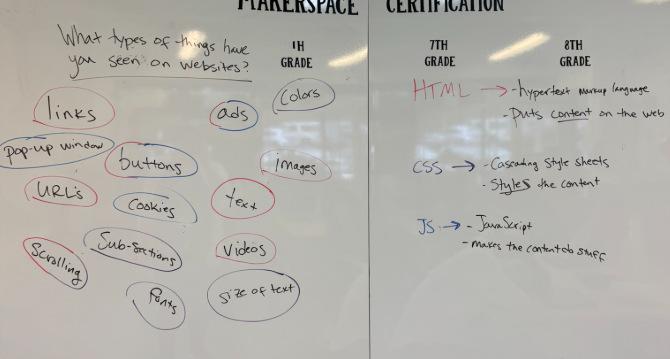 MAKERSPACE CERTIFICATION
What types of things have
you seen on websites?
TH
GRADE
links
ads
colors
pop-up window
buttons
images
URL's
cookies
text
Scrolling
Sub-Sections
videos
fonts
size of text
7TH
GRADE
8TH
GRADE
HTML → -hypertext markup language
- Puts content on the web
CSS → - Cascading Style sheets
- Styles the content
JS → - JavaScript
- makes the content do stuff